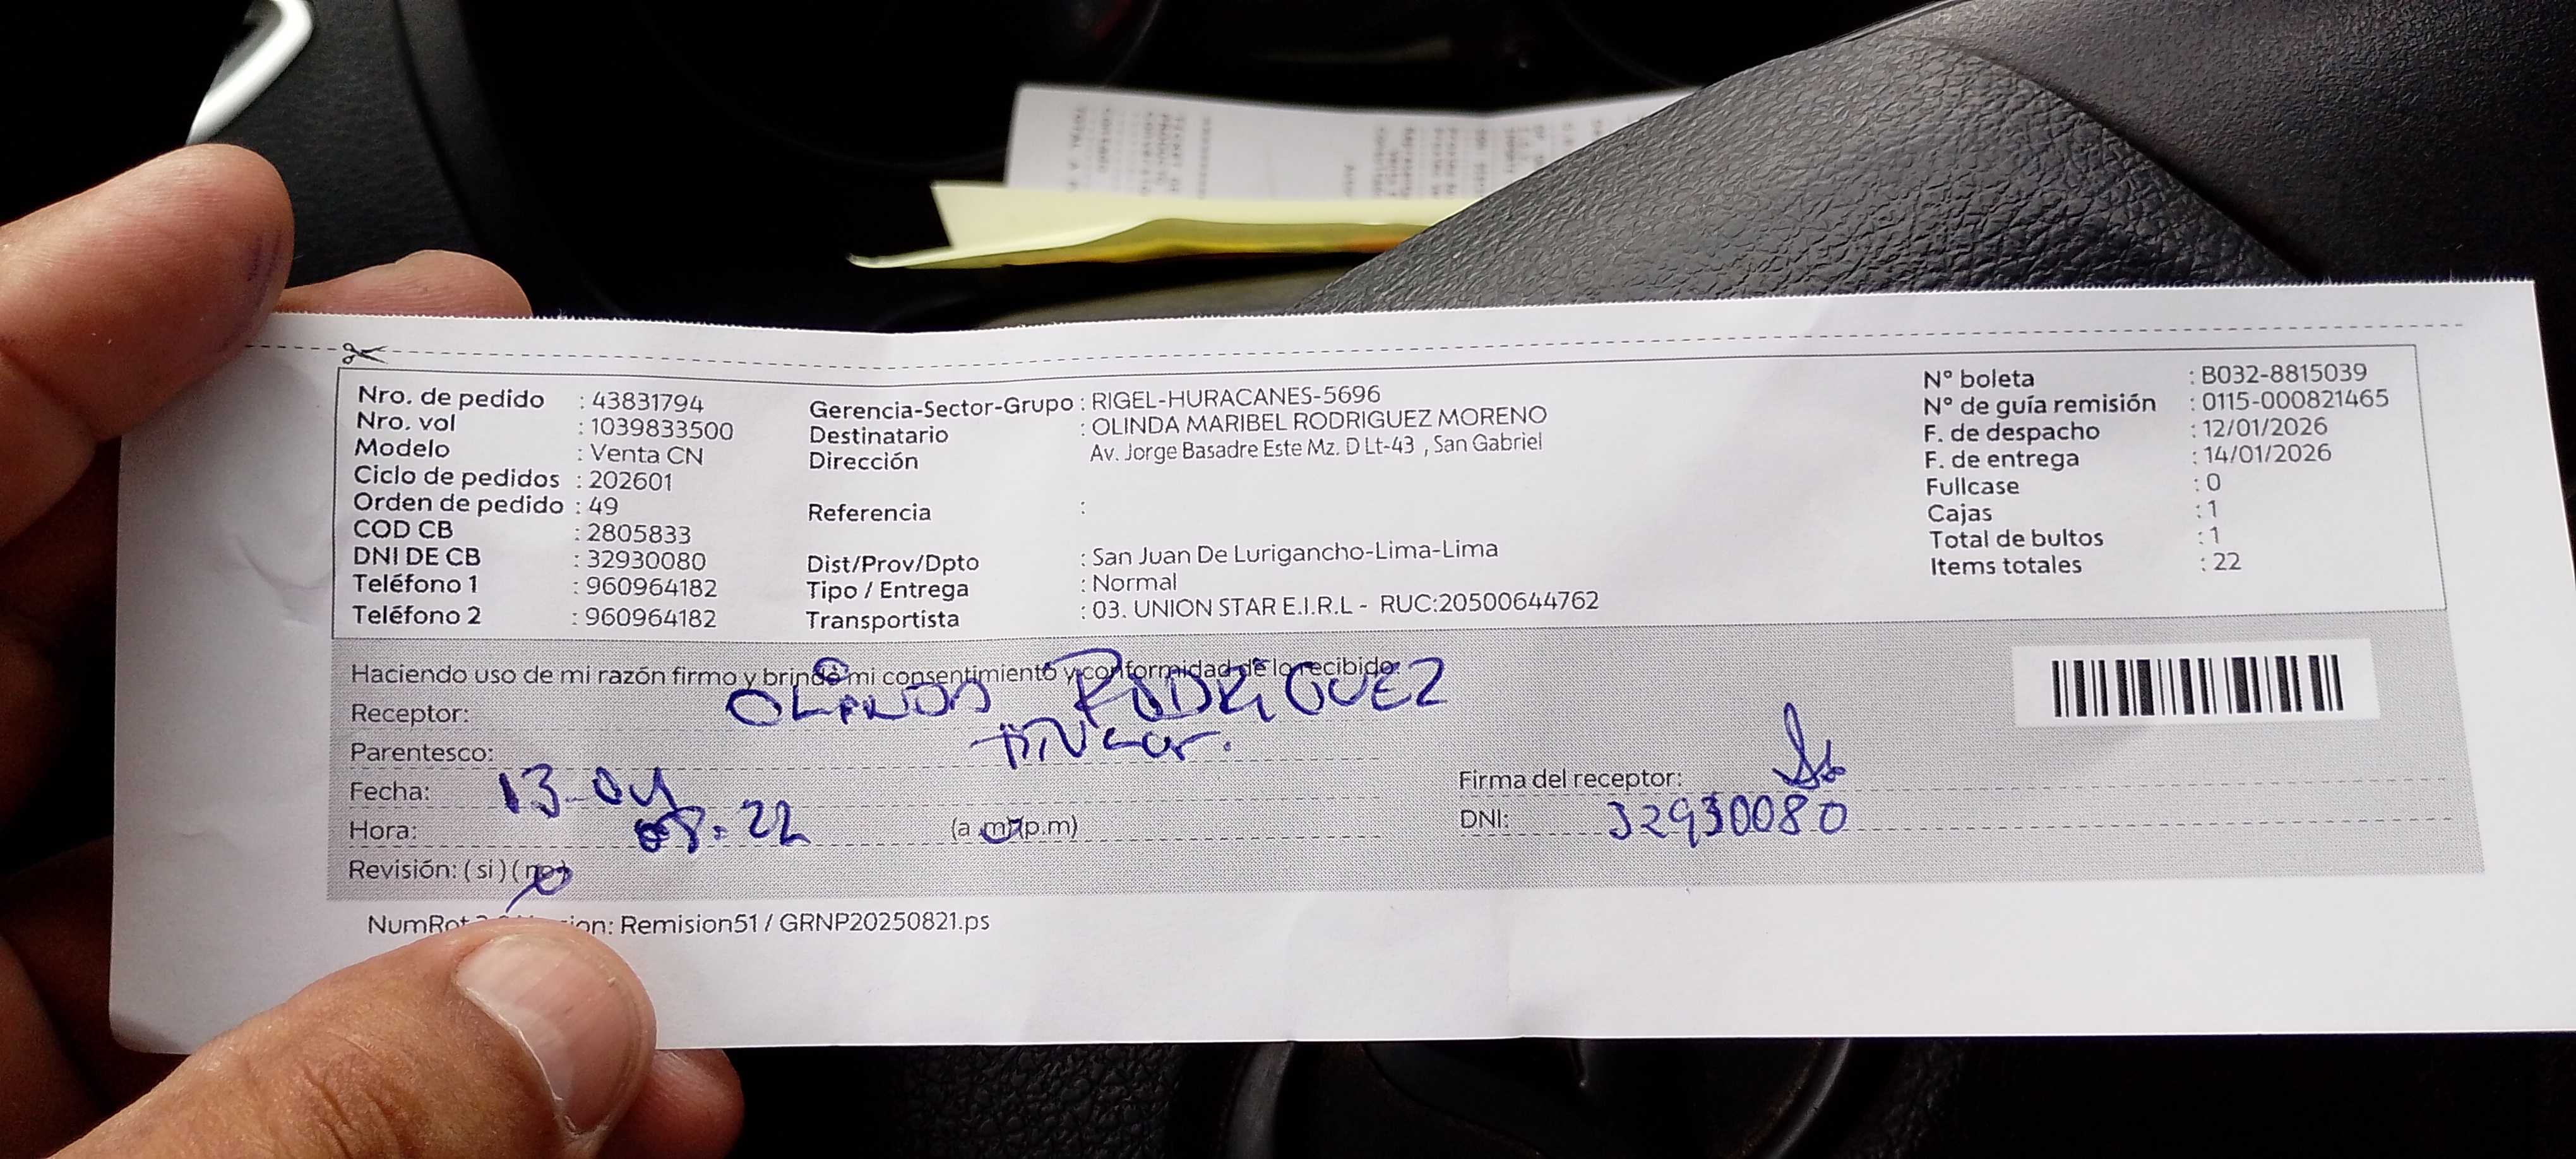 Nro. de pedido : 43831794
Nro. vol : 1039833500
Modelo : Venta CN
Ciclo de pedidos : 202601
Orden de pedido : 49
COD CB : 2805833
DNI DE CB : 32930080
Teléfono 1 : 960964182
Teléfono 2 : 960964182
Gerencia-Sector-Grupo : RIGEL-HURACANES-5696
Destinatario : OLINDA MARIBEL RODRIGUEZ MORENO
Dirección Av. Jorge Basadre Este Mz. D Lt-43 , San Gabriel
Referencia :
Dist/Prov/Dpto : San Juan De Lurigancho-Lima-Lima
Tipo / Entrega : Normal
Transportista : 03. UNION STAR E.I.R.L - RUC:20500644762
N° boleta : B032-8815039
N° de guía remisión : 0115-000821465
F. de despacho : 12/01/2026
F. de entrega : 14/01/2026
Fullcase : 0
Cajas : 1
Total de bultos : 1
Items totales : 22
Haciendo uso de mi razón firmo y brindo mi consentimiento y conformidad de lo recibido:
Receptor: RODRIGUEZ
Parentesco:
Fecha: 13-04
Hora: 08:22 (a.m/p.m)
Revisión: ( si ) ( no )
Firma del receptor:
DNI: 32930080
Remision51 / GRNP20250821.ps